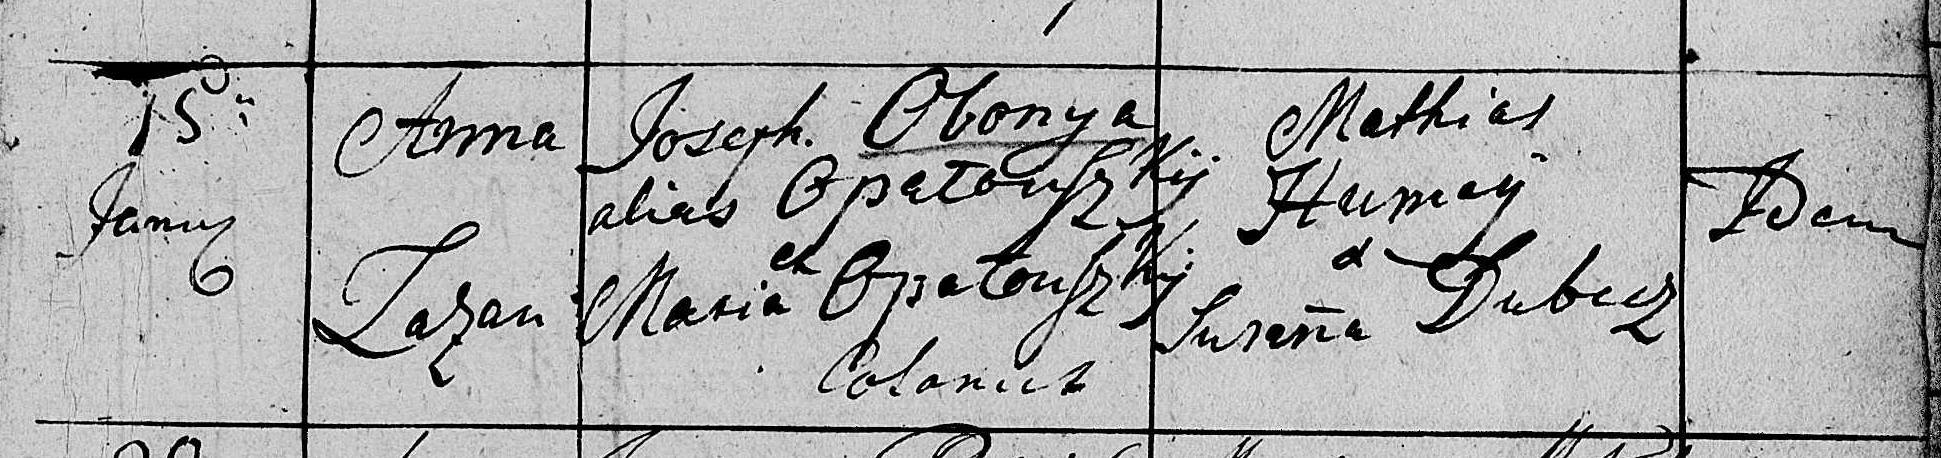 15ª
Janu
Anna
Lazan
Joseph. Obonya
alias Opatouszkij
et
Maria Opatouszkij
Colonus
Mathias
Humaÿ
&
Susaña Dubecz
Idem